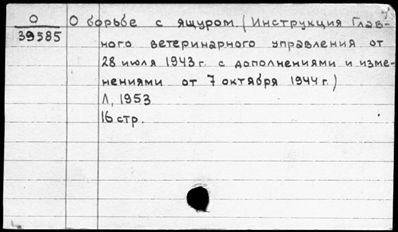 О
39585
О борьбе с ящуром. (Инструкция Глав-
ного ветеринарного управления от
28 июля 1943 г. с дополнениями и изме-
нениями от 7 октября 1944 г.)
Л, 1953
16 стр.